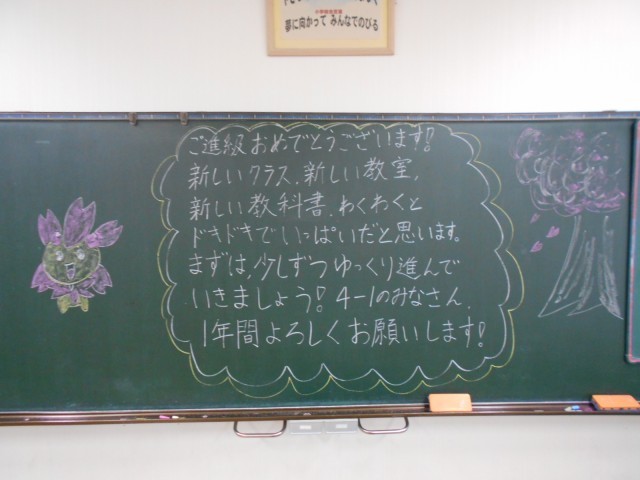 小学校教育目標
夢に向かって みんなでのびる
ご進級おめでとうございます!
新しいクラス、新しい教室、
新しい教科書、わくわくと
ドキドキでいっぱいだと思います。
まずは、少しずつゆっくり進んで
いきましょう! 4-1のみなさん、
1年間よろしくお願いします!